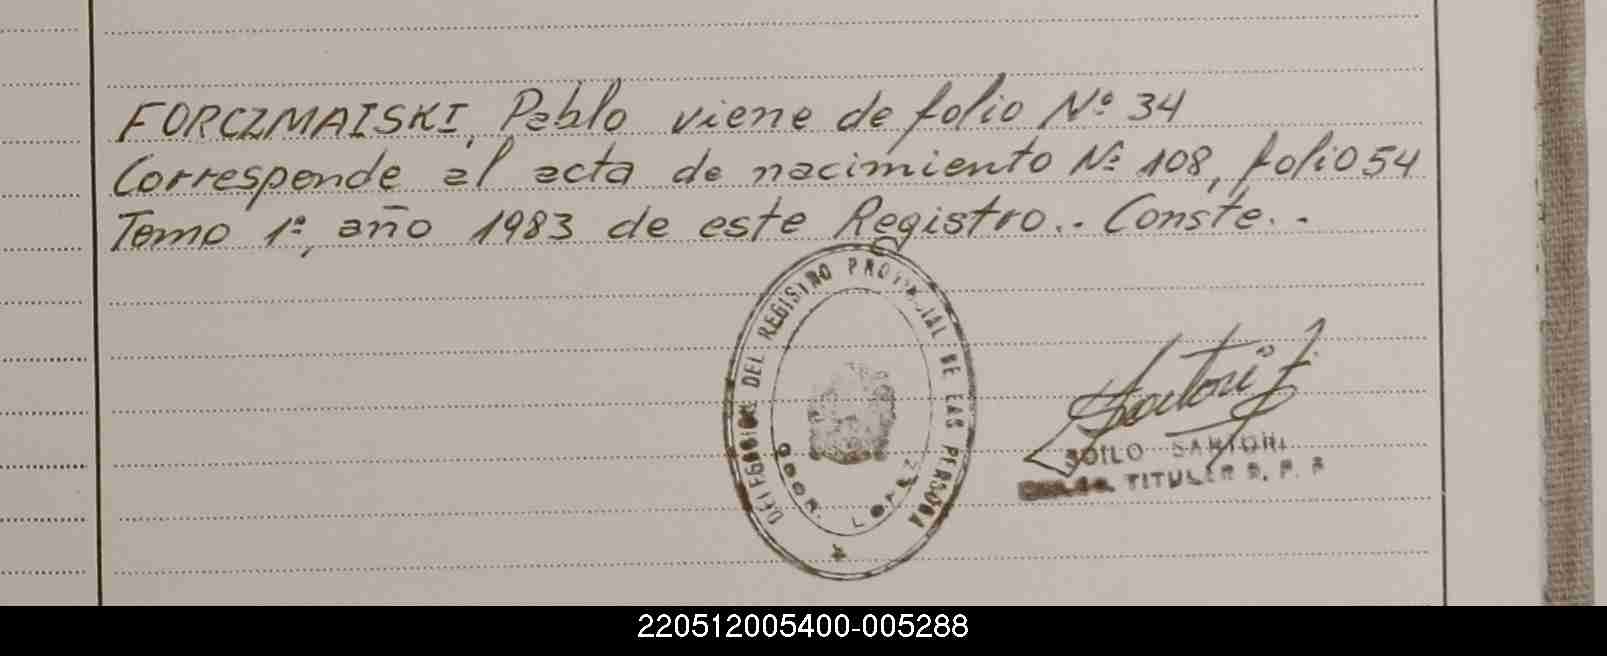 FORCZMAISKI, Pablo viene de folio Nº 34
Corresponde al acta de nacimiento Nº 108, folio 54
Tomo 1º, año 1983 de este Registro.. Conste..
DELEGACION DEL REGISTRO PROVINCIAL DE LAS PERSONA
GDOR. LOPEZ
Sartori Z
ZOILO SARTORI
TITULAR R. P. P
220512005400-005288